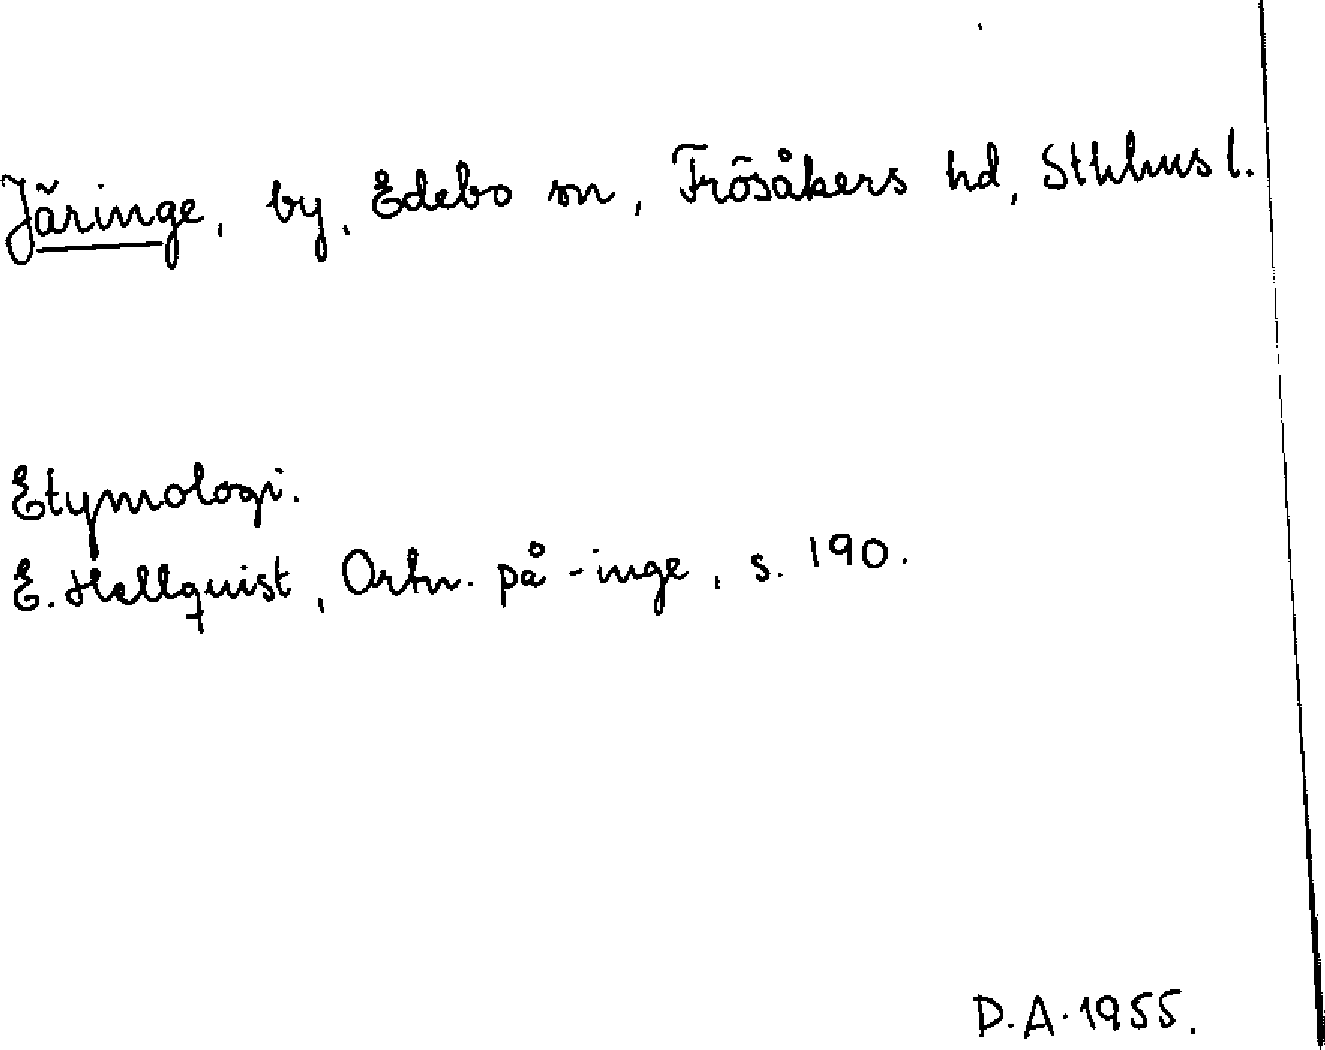 Järinge, by, Edebo sn, Frösåkers hd, Sthlms l.
Etymologi.
E. Hellquist, Ortn. på -inge, s. 190.
D.A. 1955.